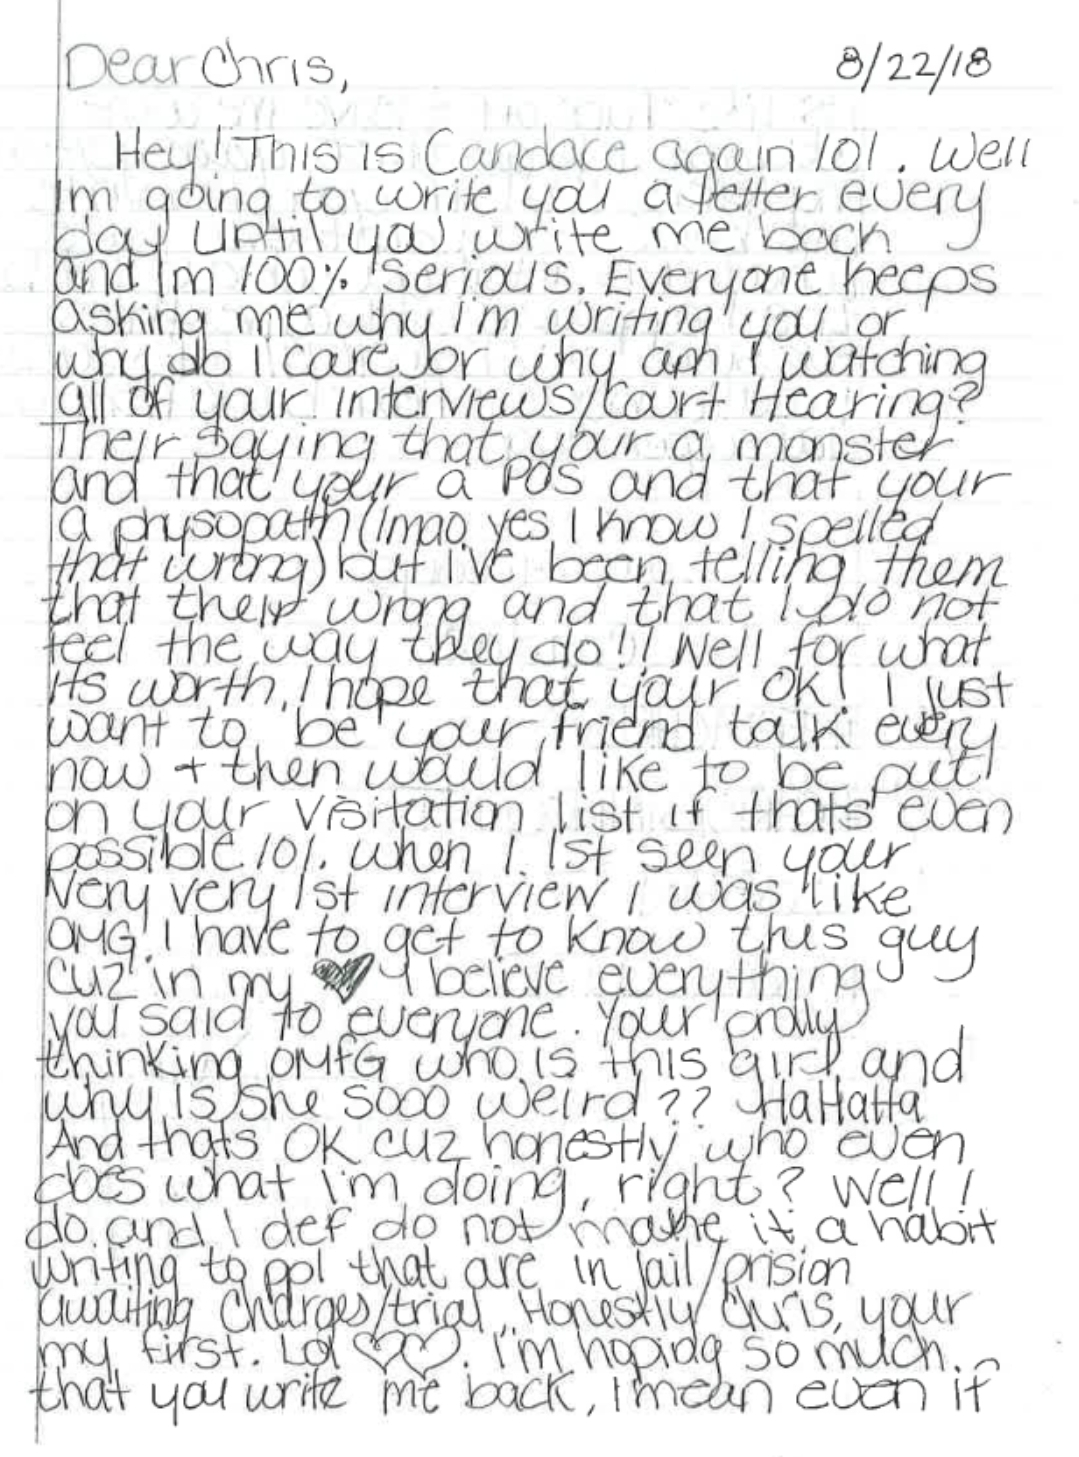 Dear Chris,
8/22/18
Hey! This is Candace again lol. Well
Im going to write you a letter every
day until you write me back
and Im 100% Serious. Everyone keeps
asking me why i'm writing you or
why do I care or why am I watching
all of your interviews/Court Hearing?
Their Saying that your a monster
and that your a POS and that your
a physopath (lmao yes I know I spelled
that wrong) but I've been telling them
that their wrong and that I do not
feel the way they do!! Well for what
its worth, I hope that your OK! I just
want to be your friend talk every
now + then would like to be put
on your visitation list if thats even
possible lol. When I 1st seen your
Very very 1st interview I was like
OMG! I have to get to know this guy
cuz in my ♥ I believe everything
you said to everyone. Your prolly
thinking OMFG who is this girl and
why is she sooo weird?? HaHaHa
And thats OK cuz honestly who even
does what I'm doing, right? Well I
do and I def do not make it a habit
writing to ppl that are in jail/prision
awaiting Charges/trial. Honestly Chris, your
my first. Lol ♡♡. I'm hoping so much
that you write me back, I mean even if